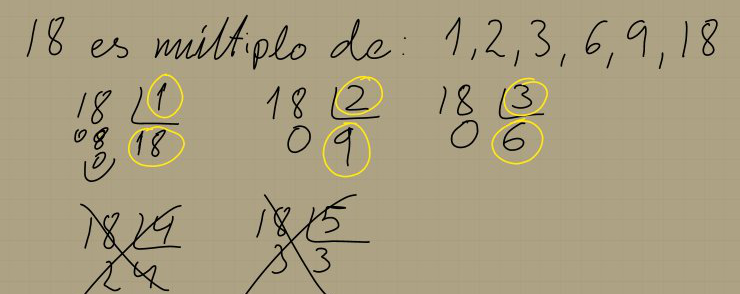 18 es múltiplo de: 1, 2, 3, 6, 9, 18
18 1 18 2 18 3
08 18 0 9 0 6
0
18 4 18 5
2 4 3 3